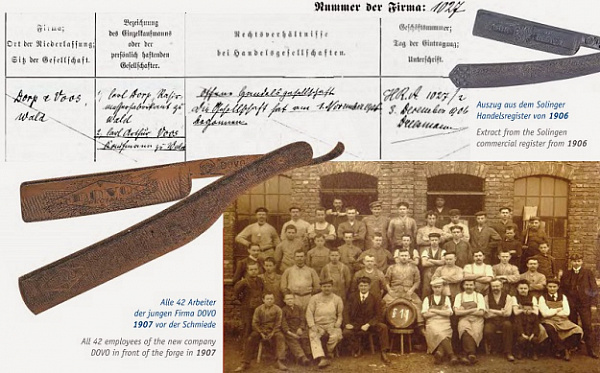 Nummer der Firma: 1027
Firma;
Ort der Niederlassung;
Sitz der Gesellschaft.
Bezeichnung
des Einzelkaufmanns
oder der
persönlich haftenden
Gesellschafter.
Rechtsverhältnisse
bei Handelsgesellschaften.
Geschäftsnummer;
Tag der Eintragung;
Unterschrift.
Dorp & Voos,
Wald
1, Carl Dorp, Rasir-
messerfabrikant zu
Wald
2, Carl Arthur Voos
Kaufmann zu Wald
Offene Handelsgesellschaft
Die Gesellschaft hat am 1. November 1906
begonnen
H.R.A 1027/2
3. Dezember 1906
Auszug aus dem Solinger
Handelsregister von 1906
Extract from the Solingen
commercial register from 1906
DOVO
DOVO
Alle 42 Arbeiter
der jungen Firma DOVO
1907 vor der Schmiede
All 42 employees of the new company
DOVO in front of the forge in 1907